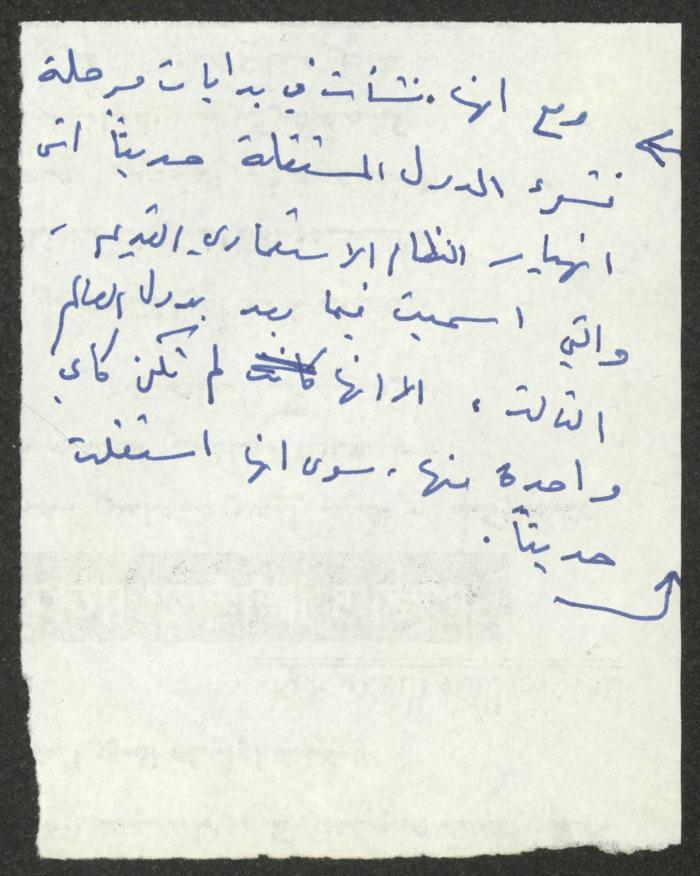 ومع انها نشأت في بدايات مرحلة
نشوء الدول المستقلة حديثاً اثر
انهيار النظام الاستعماري القديم -
والتي اسميت فيما بعد بدول العالم
الثالث، الا انها كانت لم تكن كأي
واحدة منها، سوى انها استقلت
حديثاً.